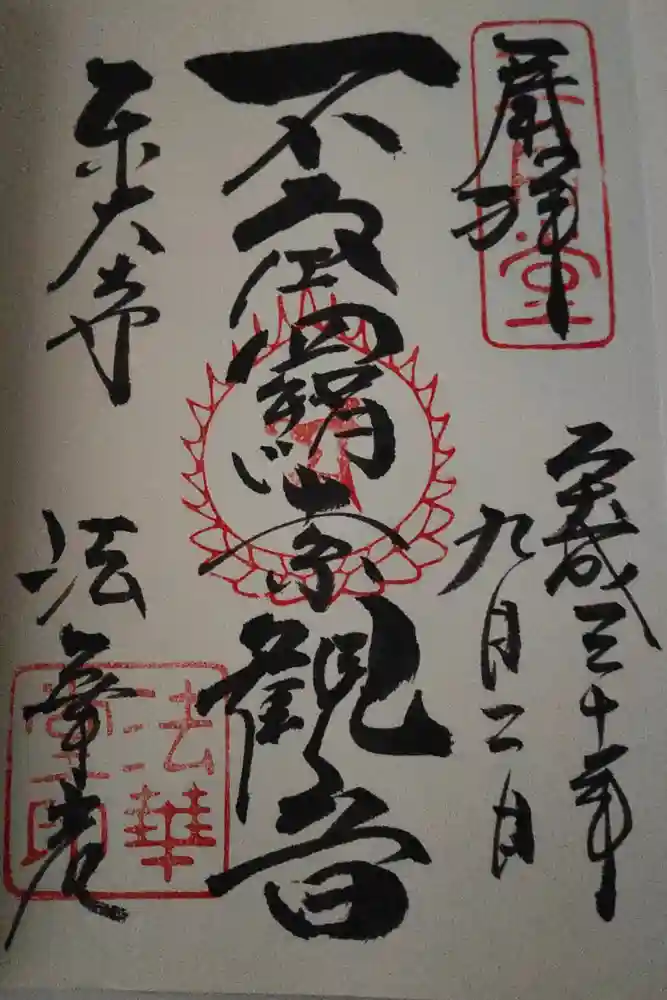 奉拝
平成三十年
九月二日
不空羂索観音
東大寺 法華堂
法華
堂印